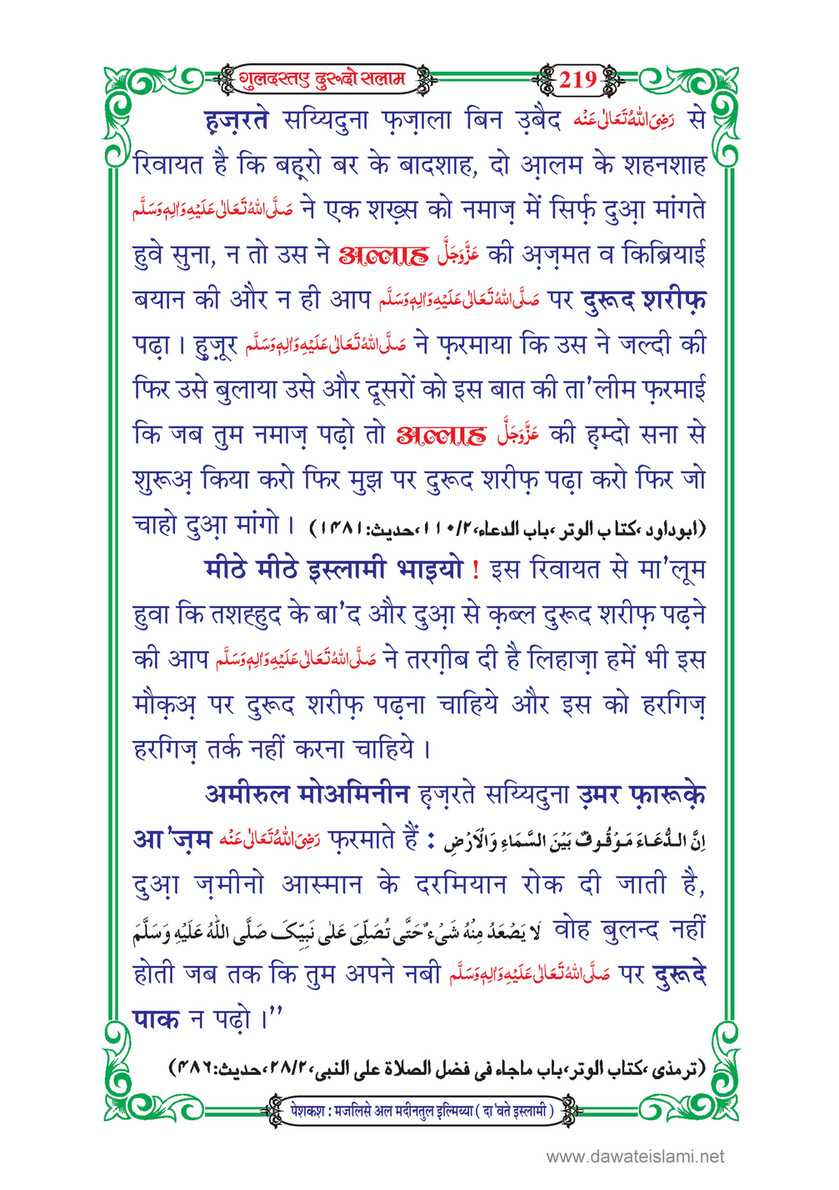 गुलदस्तए दुरूदो सलाम
219
ह़ज़रते सय्यिदुना फ़ज़ाला बिन उ़बैद رَضِیَ اللہُ تَعَالٰی عَنْہ से
रिवायत है कि बह़्रो बर के बादशाह, दो आ़लम के शहनशाह
صَلَّی اللہُ تَعَالٰی عَلَیْہِ وَاٰلِہٖ وَسَلَّم ने एक शख़्स को नमाज़ में सिर्फ़ दुआ़ मांगते
हुवे सुना, न तो उस ने अल्लाह عَزَّوَجَلَّ की अ़ज़मत व किब्रियाई
बयान की और न ही आप صَلَّی اللہُ تَعَالٰی عَلَیْہِ وَاٰلِہٖ وَسَلَّم पर दुरूद शरीफ़
पढ़ा । हु़ज़ूर صَلَّی اللہُ تَعَالٰی عَلَیْہِ وَاٰلِہٖ وَسَلَّم ने फ़रमाया कि उस ने जल्दी की
फिर उसे बुलाया उसे और दूसरों को इस बात की ता'लीम फ़रमाई
कि जब तुम नमाज़ पढ़ो तो अल्लाह عَزَّوَجَلَّ की ह़म्दो सना से
शुरूअ़ किया करो फिर मुझ पर दुरूद शरीफ़ पढ़ा करो फिर जो
चाहो दुआ़ मांगो । (ابوداود ،کتاب الوتر ،باب الدعاء،۱۱۰/۲،حدیث:۱۴۸۱)
मीठे मीठे इस्लामी भाइयो ! इस रिवायत से मा'लूम
हुवा कि तशह्हुद के बा'द और दुआ़ से क़ब्ल दुरूद शरीफ़ पढ़ने
की आप صَلَّی اللہُ تَعَالٰی عَلَیْہِ وَاٰلِہٖ وَسَلَّم ने तरग़ीब दी है लिहाज़ा हमें भी इस
मौक़अ़ पर दुरूद शरीफ़ पढ़ना चाहिये और इस को हरगिज़
हरगिज़ तर्क नहीं करना चाहिये ।
अमीरुल मोअमिनीन ह़ज़रते सय्यिदुना उ़मर फ़ारूक़े
आ'ज़म رَضِیَ اللہُ تَعَالٰی عَنْہ फ़रमाते हैं : اِنَّ الدُّعَاءَ مَوْقُوفٌ بَیْنَ السَّمَاءِ وَالْاَرْضِ
दुआ़ ज़मीनो आस्मान के दरमियान रोक दी जाती है,
لَا یَصْعَدُ مِنْہُ شَیْءٌ حَتّٰی تُصَلِّیَ عَلٰی نَبِیِّکَ صَلَّی اللّٰہُ عَلَیْہِ وَسَلَّمَ वोह बुलन्द नहीं
होती जब तक कि तुम अपने नबी صَلَّی اللہُ تَعَالٰی عَلَیْہِ وَاٰلِہٖ وَسَلَّم पर दुरूदे
पाक न पढ़ो ।"
(ترمذی ،کتاب الوتر،باب ماجاء فی فضل الصلاة علی النبی،۲۸/۲،حدیث:۴۸۶)
पेशकश : मजलिसे अल मदीनतुल इल्मिय्या ( दा'वते इस्लामी )
www.dawateislami.net